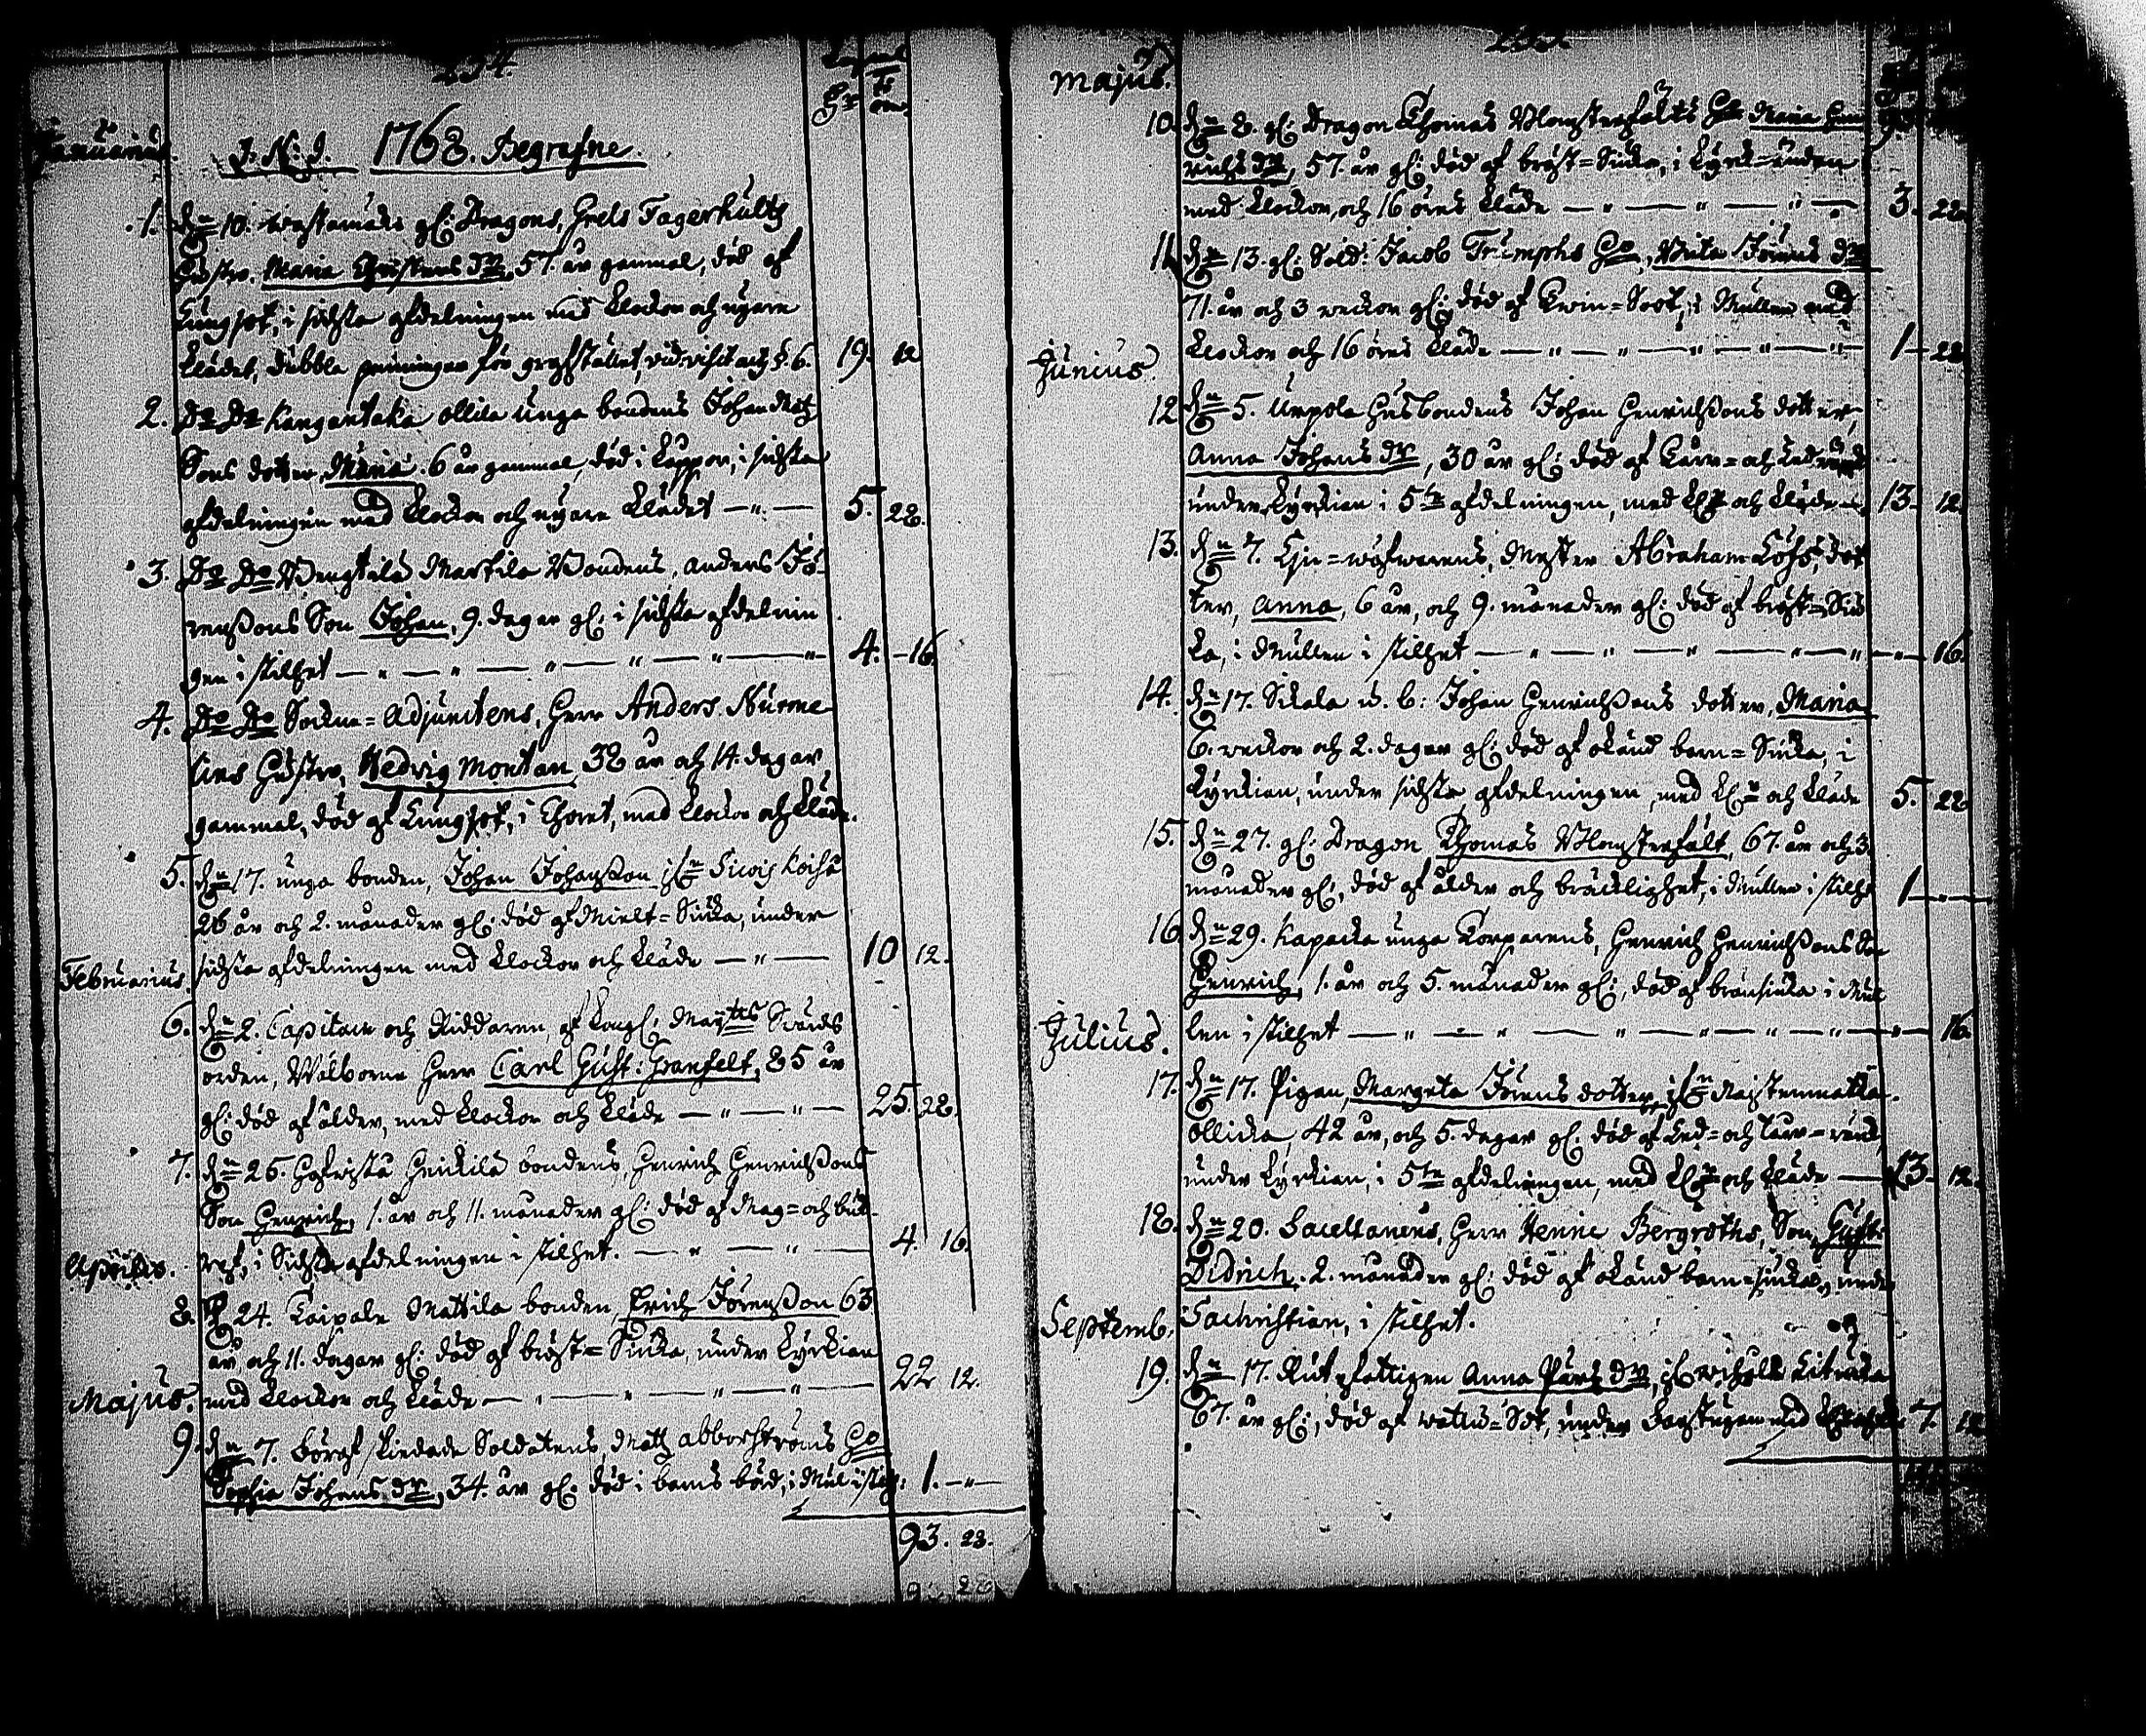 234.
Januarius.
J. N. J. 1768. Begrafne.
1. d:n 10. gl: Dragons, Grels Fagerhults
hustro, Maria Christens d:r 57. år gammal, död af
Lungsot, i sidsta afdelningen med klockor och nyare
klädet, dubbla penningar för grafstället, vid. visit. act. § 6. 19. 12
2. D:o D:o Kangantaka ollila unga bondens Johan Matz
Sons dotter, Maria. 6 år gammal, död i koppor, i sidsta
afdelningen med klockor och nyare klädet — " — 5. 28.
3. D:o D:o Martila Bondens, Anders Jö-
renssons Son Johan, 9. dagar gl: i sidsta afdelnin
gen i stilhet — " — " — " — " — " — 4. 16.
4. D:o D:o Sockne=Adjunctens, Herr Anders Nurme
lins Hustro, Hedvig Montan 38 år och 14. dagar
gammal, död af Lungsot, i Choret, med klockor och kläde.
5. d:n 17. unga bonden, Johan Johansson ifr:n Sicois koiso
26 år och 2. månader gl: död af Mielt=Siuka, under
sidsta afdelningen med klockor och kläde — " — 10 12.
Februarius.
6. d:n 2. Capitain och Riddaren, af Kongl: May:tts Svärds
orden, Wälborne Herr Carl Gust: Granfelt, 85 år
gl: död af ålder, med klockor och kläde — " — " — 25. 28.
7. d:n 25. Heickilä bondens, Henrich Henrichssons
Son Henrich, 1. år och 11. månader gl: död af Mag= och buk-
ref, i Sidsta afdelningen i stilhet. — " — " — 4. 16.
Aprilis.
8. d:n 24. Caipola Mattila bonden, Erich Jörensson 63
år och 11. dagar gl: död af bröst=Siuka, under Kyrkian
med klockor och kläde — " — " — " — 22 12.
Majus.
9. d:n 7. Soldatens, Matz abborströms H:o
Sophia Johans d:r, 34. år gl: död i barns börd, i Mul: i stilh: 1. — " —
93. 28.
Majus.
10. d:n 8. gl: Dragon Thomas Blomsterfälts H:o Maria Hen
richs d:r, 57. år gl: död af bröst=Siuka, i Kyrk=
med klockor, och 16 öres kläde — " — " — " — 3. 28.
11. d:n 13. gl: Sold: Jacob Triumphs H:o, Brita Jörens d:r
71. år och 3 veckor gl: död af Twin=Soot, i Mullen med
klockor och 16 öres kläde — " — " — " — " — 1 — 28
Junius.
12. d:n 5. Urpola Husbondens Johan Henrichssons dotter,
Anna Johans d:r, 30 år gl: död af
under Kyrkian i 5:te afdelningen, med kl:r och kläde 13. 12.
13. d:n 7. Lin=wäfwarens, Mester Abraham Löfs, dot
ter, Anna, 6 år, och 9. månader gl: död af bröst=Siu
ka, i Mullen i stilhet — " — " — " — " — " — 16.
14. d:n 17. Sikala u. b: Johan Henrichssons dotter, Maria
6. veckor och 2. dagar gl: död af okänd barn=Siuka, i
Kyrkian, under sidsta afdelningen, med kl:r och kläde 5. 28
15. d:n 27. gl: Dragon Thomas Blomsterfält, 67. år och 3.
månader gl: död af ålder och bräcklighet, i Mullen i stilh: 1 — " —
16. d:n 29. Kapacka unga Torparens, Henrich Henrichssons Son
Henrich, 1. år och 5. månader gl:, död af i Mul
len i stilhet — " — " — " — " — " — " — 16.
Julius.
17. d:n 17. Pigan, Margeta Jörens dotter, ifr:n
Ollicka, 42 år, och 5. dagar gl: död af
under Kyrkian, i 5:te afdelningen, med kl:r och kläde — 13. 12.
18. d:n 20. Sacellanens, Herr Henric Bergroths, Son, Gust:
Didrich, 2. månader gl: död af okänd barn=siuka, under
Sachristian, i stilhet.
Septemb.
19. d:n 17. Rutefattigen Anna Pärs d:r,
67. år gl:, död af watus=Sot, under 7. 12